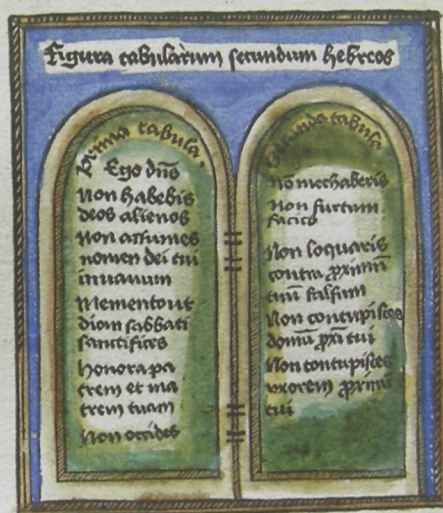 Figura tabularum secundum hebreos
prima tabula.
Ego dn̄s
Non habebis
deos alienos
Non assumes
nomen dei tui
in vanum
Memento ut
diem sabbati
sanctifices
honora pa
trem et ma
trem tuam
Non occides
Secunda tabula
nō mechaberis
Non furtum
facies
Non loquaris
contra proximū
tuū falsum
Non concupisces
domū proxi tui
Non concupisces
uxorem proximi
tui